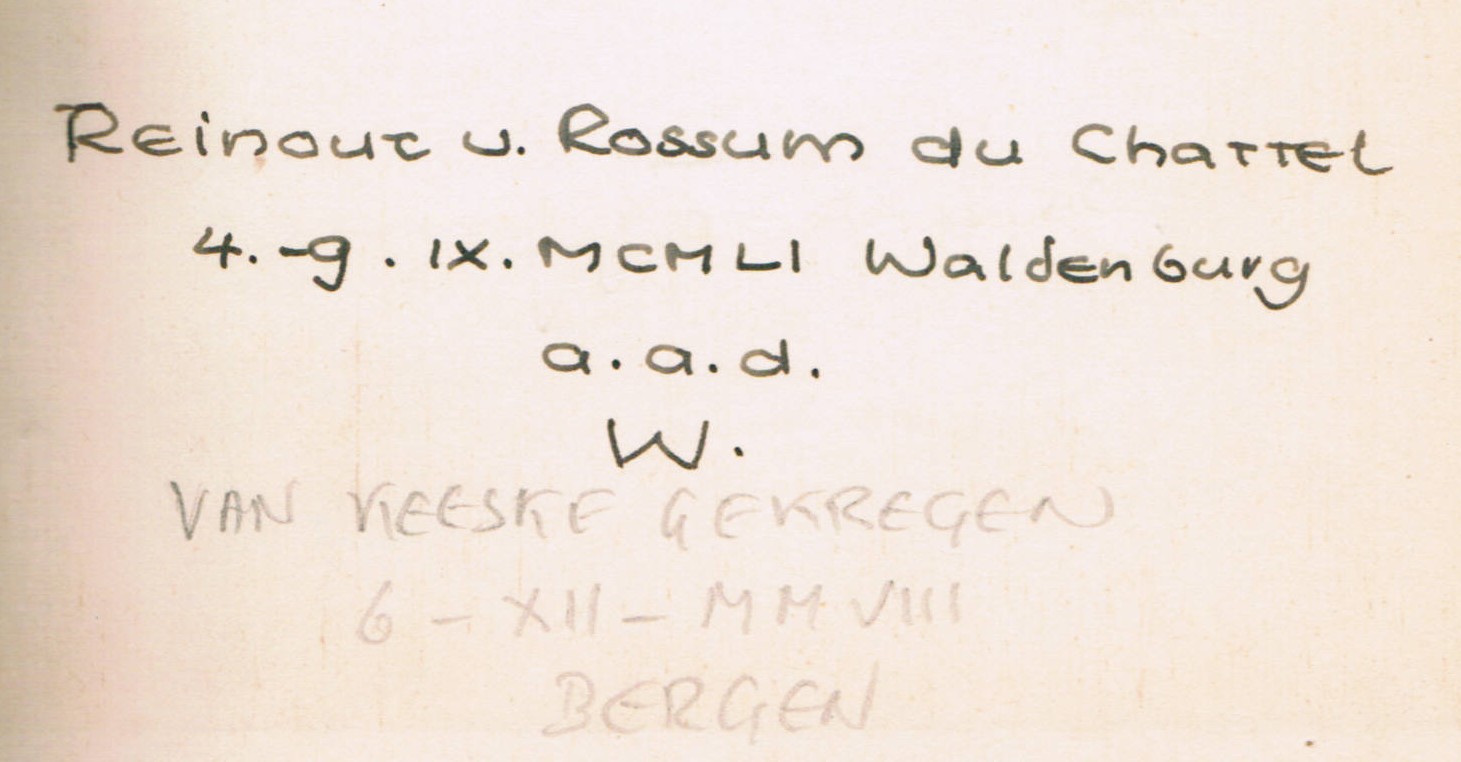 Reinout v. Rossum du Chattel
4.-9. IX. MCMLI Waldenburg
a.a.d.
W.
VAN KEESKE GEKREGEN
6 - XII - MMVIII
BERGEN